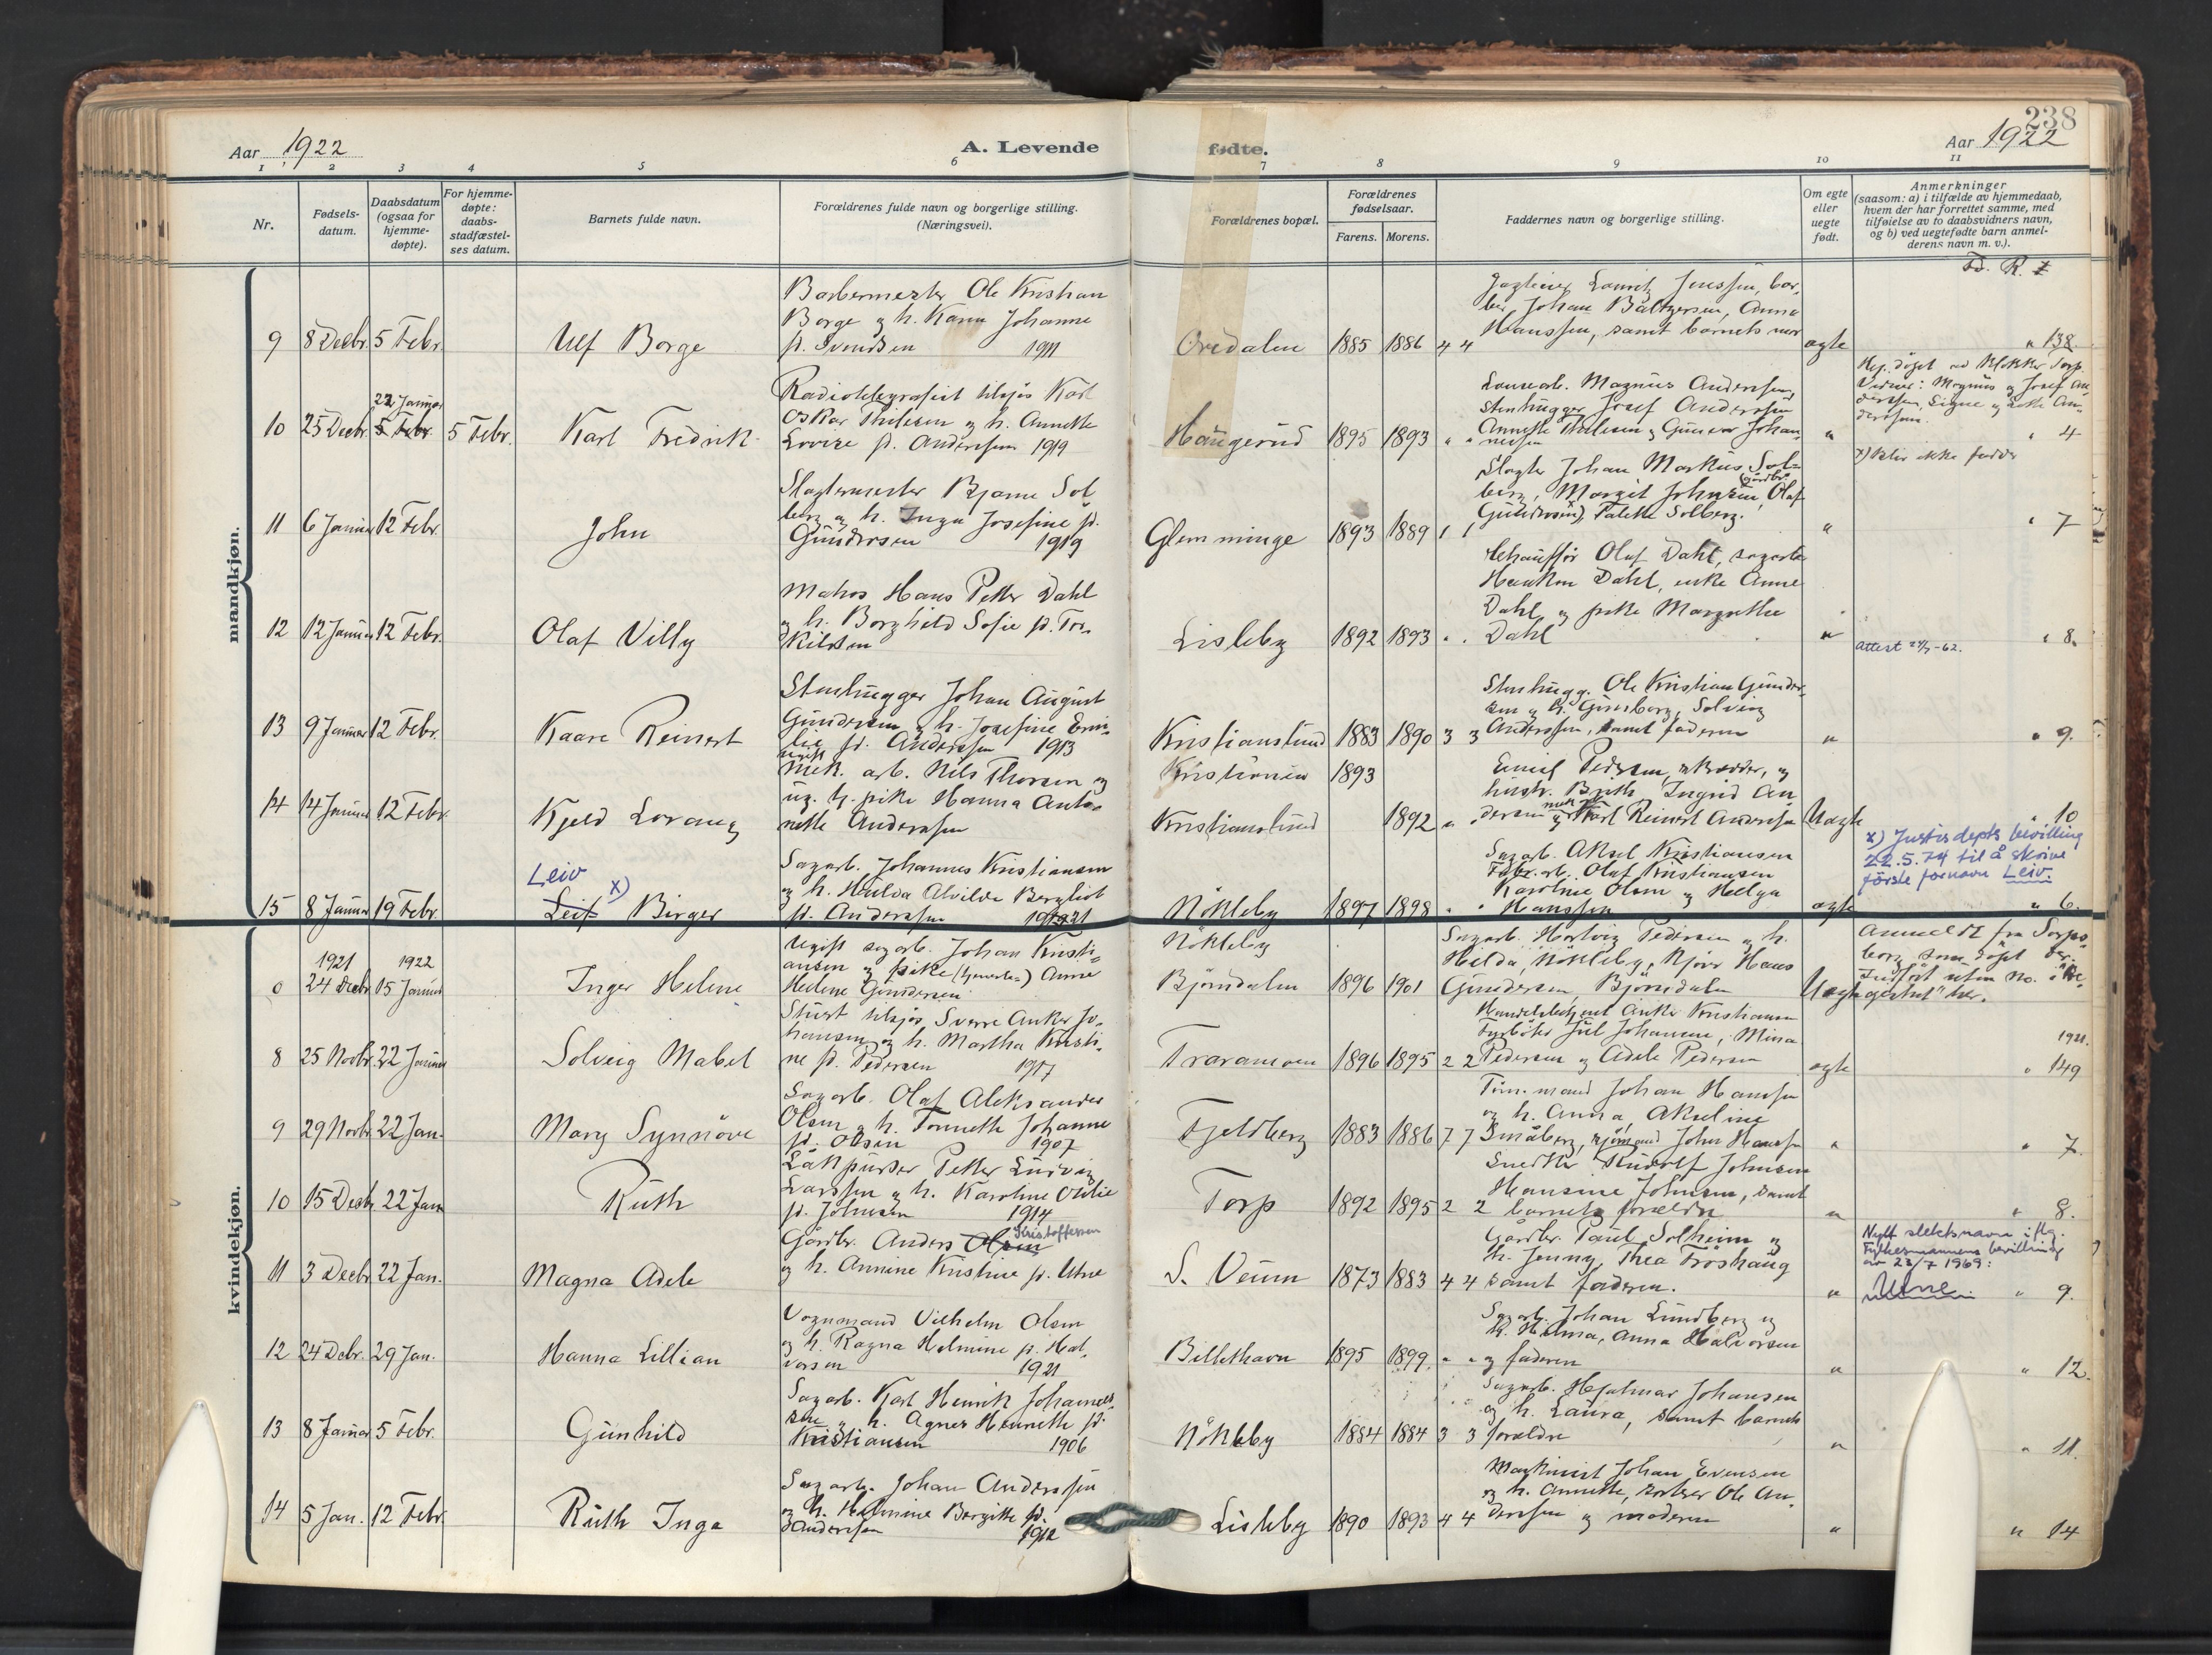 238
Aar 1922
A. Levende
fødte.
Aar 1922
1 2 3 4 5 6 7 8 9 10 11
Nr.
Fødsels-
datum.
Daabsdatum
(ogsaa for
hjemme-
døpte).
For hjemme-
døpte:
daabs-
stadfæstel-
ses datum.
Barnets fulde navn.
Forældrenes fulde navn og borgerlige stilling.
(Næringsvei).
Forældrenes bopæl.
Forældrenes
fødselsaar.
Farens. Morens.
Faddernes navn og borgerlige stilling.
Om egte
eller
uegte
født.
Anmerkninger
(saasom: a) i tilfælde av hjemmedaab,
hvem der har forrettet samme, med
tilføielse av to daabsvidners navn,
og b) ved uegtefødte barn anmel-
derens navn m. v.).
Fd. R. 7
mandkjøn.
9 8 Decbr. 5 Febr.
Ulf Borge
Barbermester Ole Kristian
Borge og h. Karen Johanne
f. Svendsen 1911
Oredalen 1885 1886 4 4
Lauritz Jenssen, bar-
ber Johan Baltzersen, Anna
Hanssen, samt barnets mor
egte
" 138.
10 25 Decbr. 22 Januar
5 Febr. 5 Febr.
Karl Fredrik
Radiotelegrafist tilsjøs Karl
Oskar Thilesen og h. Annette
Lovise f. Anderssen 1919
Haugerud 1895 1893 " "
Magnus Anderssen,
Stenhugger Josef Anderssen
Annette Thilesen og Gunvor Johan-
nessen
"
Hj. døpt ved klokker Torp.
Vidner: Magnus og Josef An-
derssen, Signe og Lotte An-
derssen.
" 4
x) Blir ikke fadder
11 6 Januar 12 Febr.
John
Slagtermester Bjarne Sol
berg og h. Inga Josefine f.
Gundersen 1919
Glemminge 1893 1889 1 1
Slagter Johan Markus Sol-
berg, Margit Johnsen, gårdbr. Olaf
Gundersen, Valette Solberg.
"
" 7
12 12 Januar 12 Febr.
Olaf Villy
Matros Hans Petter Dahl
og h. Borghild Sofie f. Tor-
kildsen
Lisleby 1892 1893 " "
Chauffør Olaf Dahl, sagarb.
Haakon Dahl, enke Anne
Dahl og pike Margrethe
Dahl
"
Attest -62.
" 8.
13 9 Januar 12 Febr.
Kaare Reinert
Stenhugger Johan August
Gundersen og h. Josefine Emi-
lie f. Anderssen 1913
Kristianslund 1883 1890 3 3
Stenhugg. Ole Kristian Gunder-
sen og h. Gunborg, Solveig
Anderssen, samt faderen
"
" 9.
14 14 Januar 12 Febr.
Kjeld Lorang
Mek. arb. Nils Thorsen og
ug. h. pike Hanna Anto-
nette Anderssen
Kristiania 1893
Kristianslund 1892 "
Emil Pedersen, skrædder, og
hustr. Berthe, Ingrid An
dersen og Karl Reinert Anderssen
Uegte
" 10
15 8 Januar 19 Febr.
Leiv x)
Leif Birger
Sagarb. Johannes Kristiansen
og h. Hulda Alvilde Bergliot
f. Anderssen 1921
Nökleby 1897 1898 " "
Sagarb. Aksel Kristiansen
Fabr.arb. Olaf Kristiansen
Karoline Olsen og Helga
Hanssen
egte
x) Justisdepts bevilling
22.5.74 til å skrive
første fornavn Leiv.
" 6.
kvindekjøn.
0 1921 24 Decbr. 1922 15 Januar
Inger Helene
Ugift sagarb. Johan Kristi-
ansen og pike Anne
Helene Gundersen
Nökleby
Björndalen 1896 1901
Sagarb. Hartvig Pedersen og h.
Hilda, Nökleby, Hans
Gundersen, Björndalen
Uegte
Anmeldt fra Sarps-
borg som døpt der.
Indført uten no. "Re-
gistret" her.
8 25 Novbr. 22 Januar
Solveig Mabel
Stuert tilsjøs, Sverre Anker Jo-
hansen og h. Martha Kristi-
ne f. Pedersen 1917
Traramoen 1896 1895 2 2
Handelsbetjent Anker Kristiansen
Fyrbøter Jul Johansen, Minna
Pedersen og Adele Pedersen
egte
1921.
" 149
9 29 Novbr. 22 Jan.
Mary Synnöve
Sagarb. Olaf Aleksander
Olsen og h. Tonnette Johanne
f. Olsen 1907
Fjeldberg 1883 1886 7 7
Töm.mand Johan Hanssen
og h. Anna, Akseline
Småberg, sjömand John Hanssen
"
" 7.
10 15 Decbr. 22 Jan
Ruth
Lakpusser Petter Ludvig
Larssen og h. Karoline Otilie
f. Johnsen 1914
Torp 1892 1895 2 2
Snedker Rudolf Johnsen
Hansine Johnsen, samt
barnets forældre
"
" 8.
11 3 Decbr. 22 Jan.
Magna Adele
Gårdbr. Anders Olsen Kristoffersen
og h. Annine Kristine f. Utne
S. Veum 1873 1883 4 4
Gårdbr. Paul Solheim og
h. Jenny, Thea Fröshaug
samt faderen.
"
Nytt slektsnavn iflg.
Fylkesmannens bevilling
av 23/7 1969:
Utne.
" 9.
12 24 Decbr. 29 Jan.
Hanna Lillian
Vognmand Vilhelm Olsen
og h. Ragna Helmine f. Hal-
vorsen 1921
Billethavn 1895 1899 " "
Sagarb. Johan Lundberg og
h. Helma, Anna Halvorsen
og faderen
"
" 12.
13 8 Januar 5 Febr.
Gunhild
Sagarb. Karl Henrik Johannes-
sen og h. Agnes Hennette f.
Kristiansen 1906
Nökleby 1884 1884 3 3
Sagarb. Hjalmar Johansen
og h. Laura, samt barnets
forældre
"
" 11.
14 5 Jan. 12 Febr.
Ruth Inga
Sagarb. Johan Anderssen
og h. Helmine Bergitte f.
Anderssen 1912
Lisleby 1890 1893 4 4
Maskinist Johan Evensen
og h. Annette, Ole An-
derssen og moderen
"
" 14